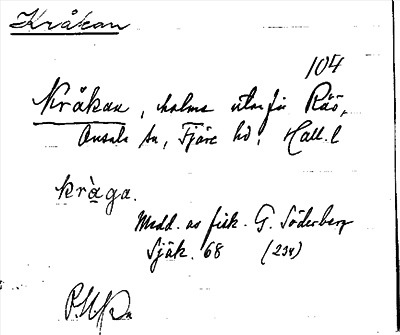 Kråkan
104
Kråkan, holme utanför Råö,
Onsala sn, Fjäre hd, Hall. l
kràga.
Medd. av fisk. G. Söderberg
Sjåk. 68 (234)